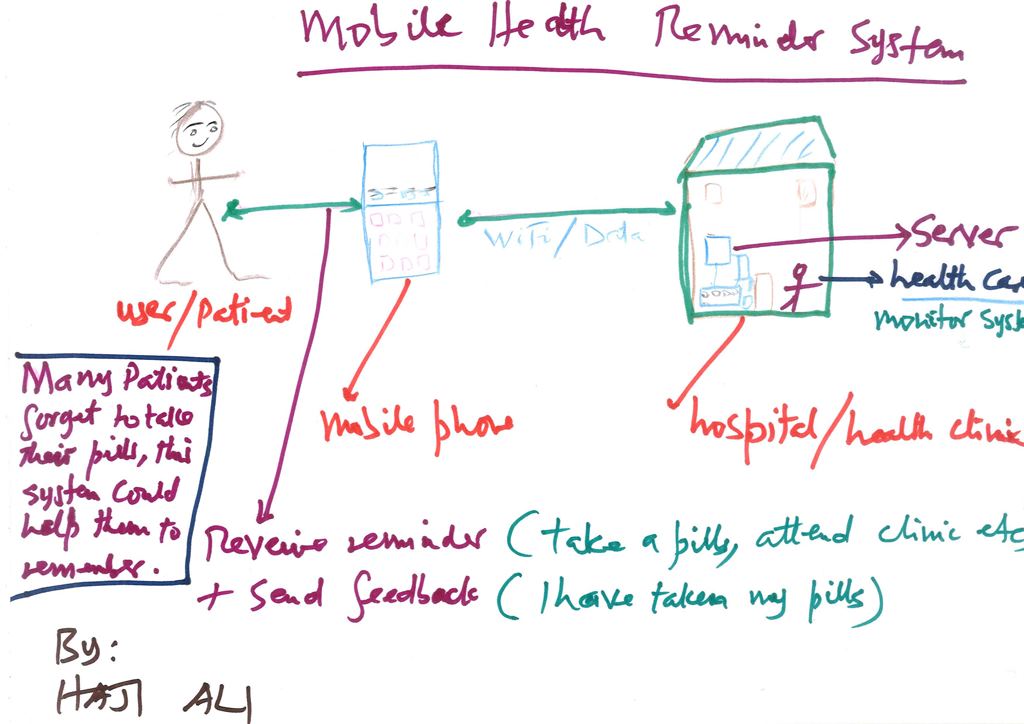 Mobile Health Reminder System
WiFi/Data
Server
health Car
monitor Syst
user/Patient
mobile phone
hospital/health clinic
Many Patients
forget to take
their pills, this
system could
help them to
remember.
Receive reminder (take a pills, attend clinic etc
+ Send feedback (I have taken my pills)
By:
HAJI ALI